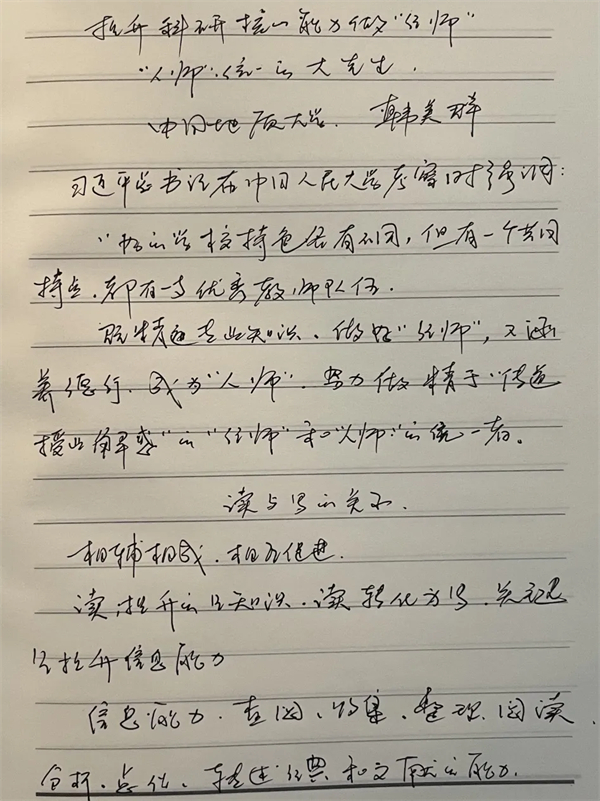 提升科研核心能力做"经师"
"人师"统一的大先生.
中国地质大学. 韩美群
习近平总书记在中国人民大学考察时强调:
"好的学校特色各有不同,但有一个共同
特点.都有一支优秀教师队伍.
既精通专业知识、做好"经师",又涵
养德行、成为"人师".努力做精于"传道
授业解惑"的"经师"和"人师"的统一者。
读与写的关系.
相辅相成.相互促进.
读.提升的是知识.读转化为写.关键
是提升信息能力
信息能力.查阅、收集、整理、阅读、
分析、 转述经典和文献的能力.